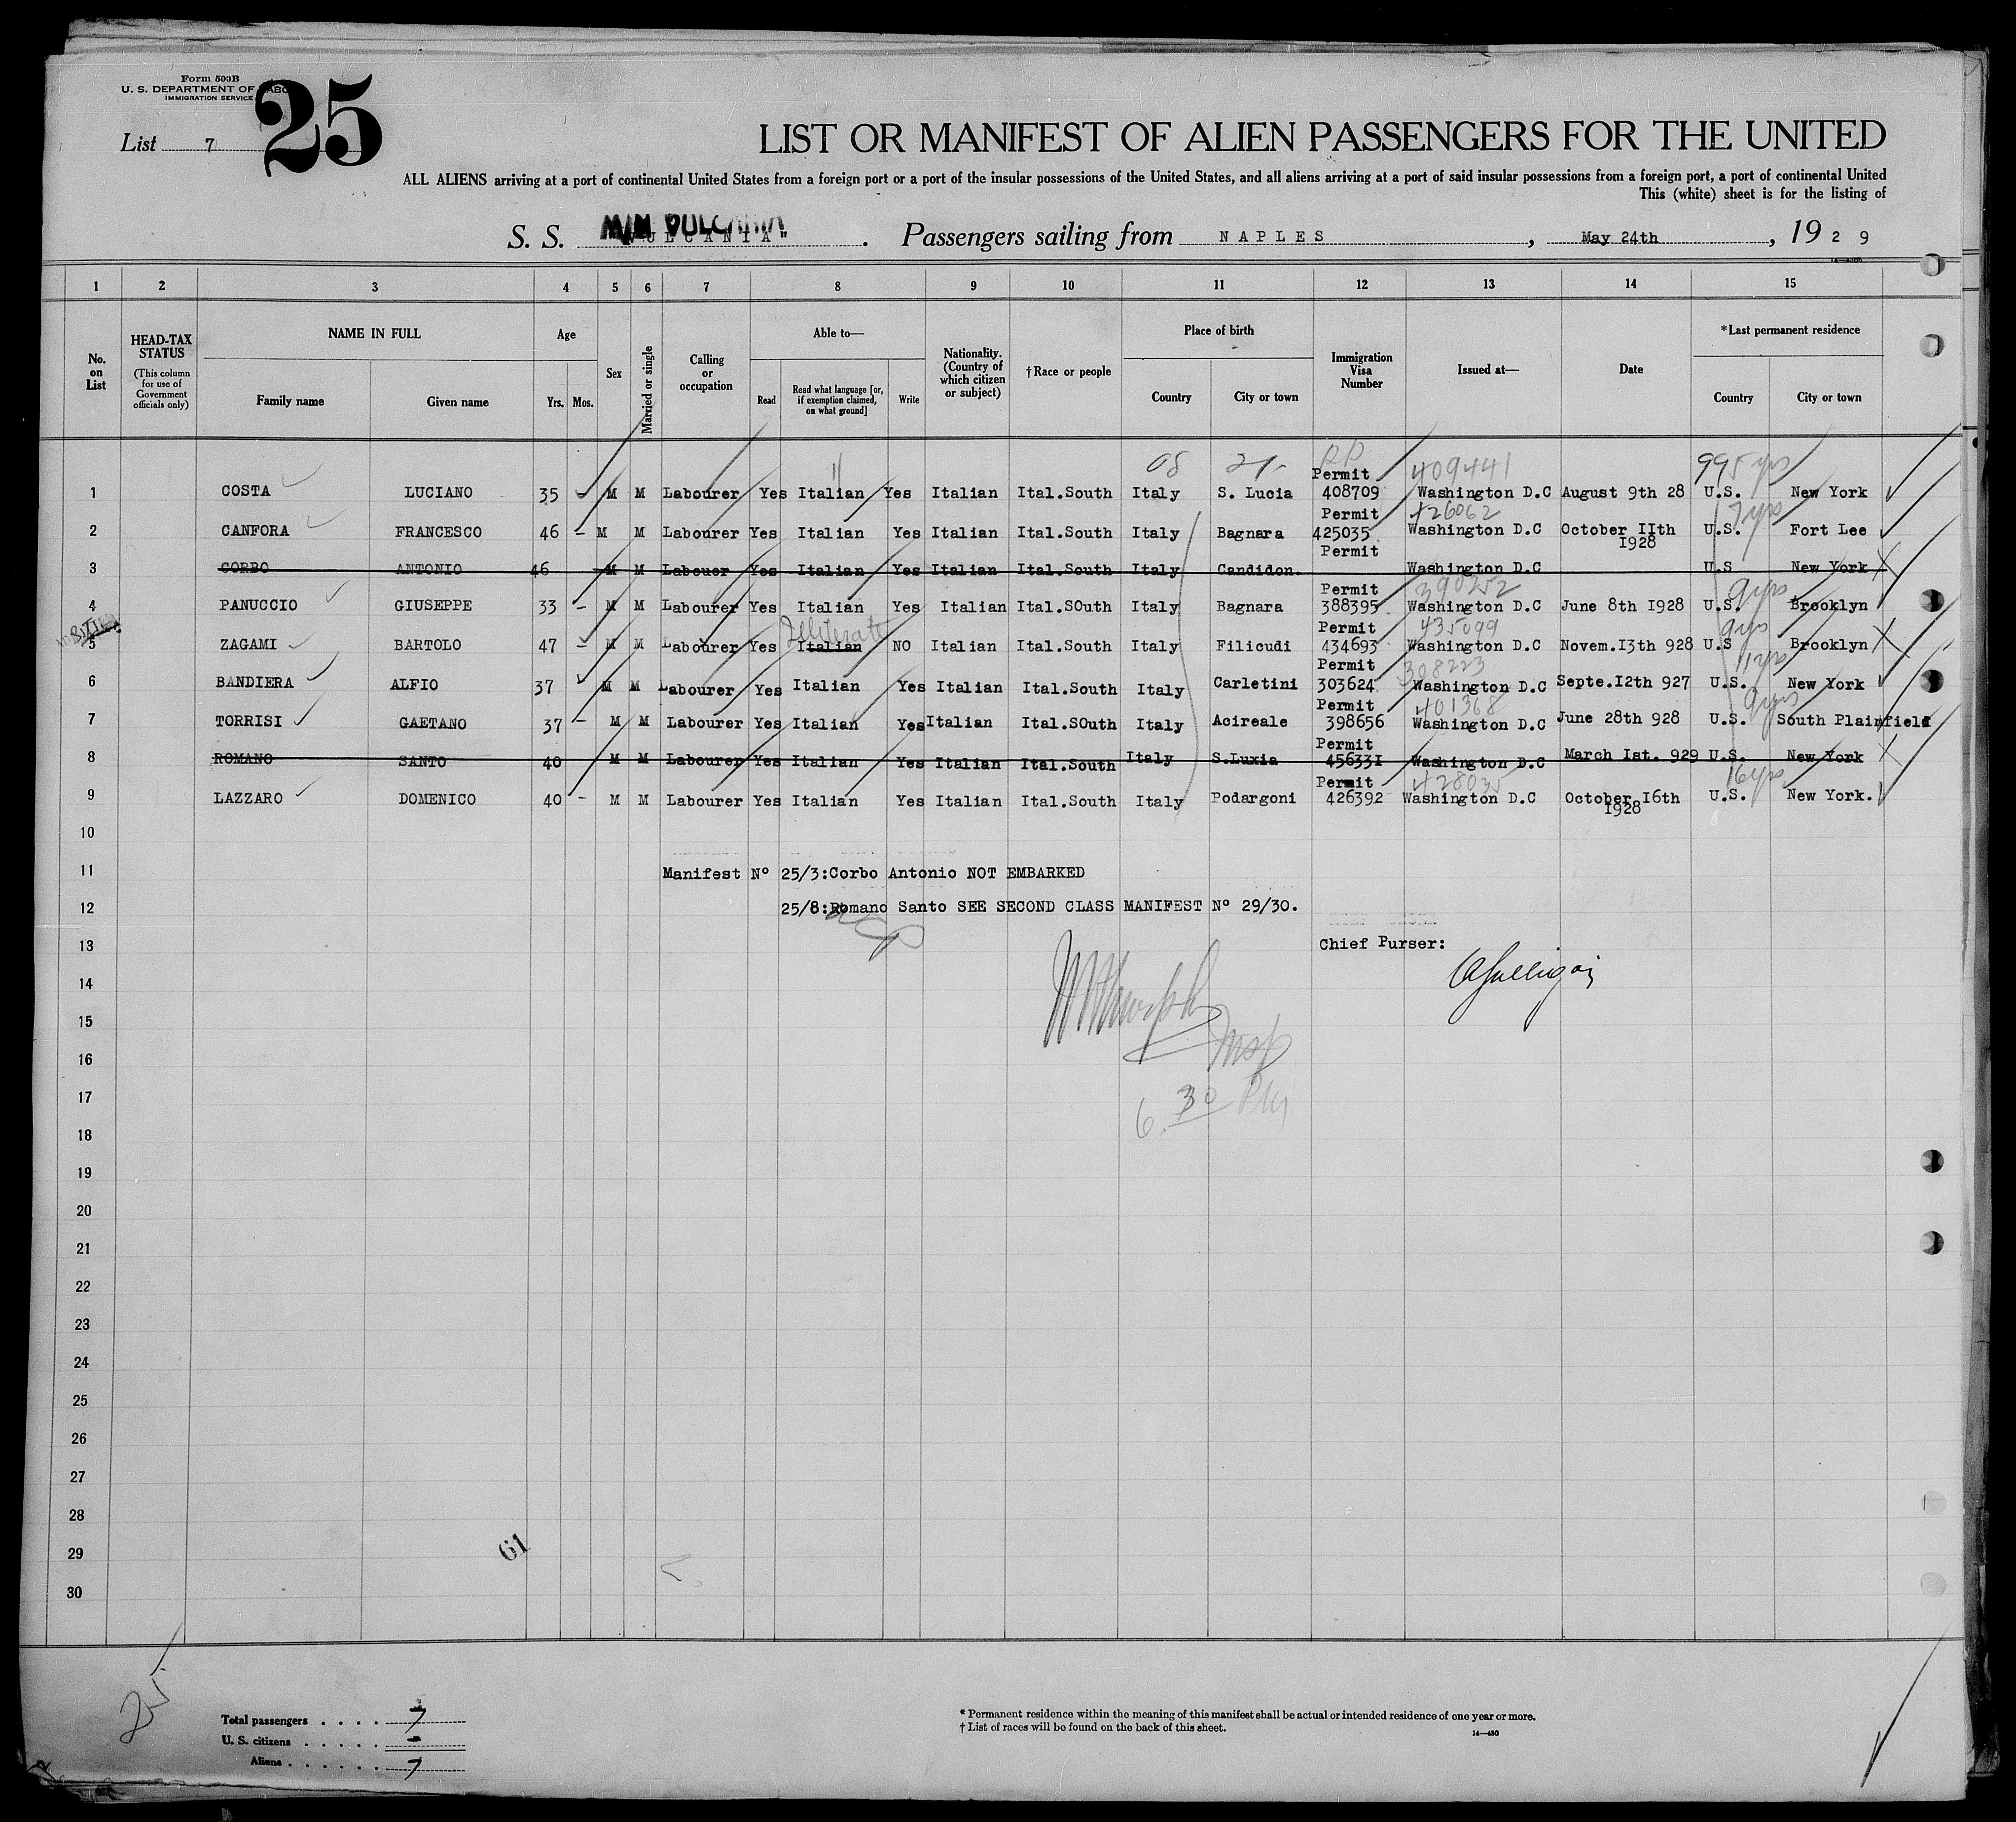 Form 500B
U. S. DEPARTMENT OF LABOR
IMMIGRATION SERVICE
25
List 7
LIST OR MANIFEST OF ALIEN PASSENGERS FOR THE UNITED
ALL ALIENS arriving at a port of continental United States from a foreign port or a port of the insular possessions of the United States, and all aliens arriving at a port of said insular possessions from a foreign port, a port of continental United
This (white) sheet is for the listing of
S. S. M/N VULCANIA "VULCANIA" . Passengers sailing from NAPLES , May 24th , 19 2 9
1 2 3 4 5 6 7 8 9 10 11 12 13 14 15
No. on List
HEAD-TAX STATUS
(This column for use of Government officials only)
NAME IN FULL
Family name Given name
Age
Yrs. Mos.
Sex
Married or single
Calling or occupation
Able to—
Read
Read what language [or, if exemption claimed, on what ground]
Write
Nationality. (Country of which citizen or subject)
†Race or people
Place of birth
Country City or town
Immigration Visa Number
Issued at—
Date
*Last permanent residence
Country City or town
08 21- Permit 409441
1 COSTA LUCIANO 35 M M Labourer Yes Italian Yes Italian Ital.South Italy S. Lucia 408709 Washington D.C August 9th 28 U.S. New York
Permit 426062 7yrs
2 CANFORA FRANCESCO 46 - M M Labourer Yes Italian Yes Italian Ital.South Italy Bagnara 425035 Washington D.C October IIth I928 U.S. Fort Lee
Permit
3 CORBO ANTONIO 46 M M Labouer Yes Italian Yes Italian Ital.South Italy Candidon. Washington D.C U.S New York
Permit 390252 9yrs
4 PANUCCIO GIUSEPPE 33 - M M Labourer Yes Italian Yes Italian Ital.SOuth Italy Bagnara 388395 Washington D.C June 8th I928 U.S. Brooklyn
Illiterate Permit 435099 9yrs
5 ZAGAMI BARTOLO 47 - M M Labourer Yes Italian NO Italian Ital.South Italy Filicudi 434693 Washington D.C Novem.I3th 928 U.S Brooklyn
Permit 308223 11yrs
6 BANDIERA ALFIO 37 M M Labourer Yes Italian Yes Italian Ital.South Italy Carletini 303624 Washington D.C Septe.I2th 927 U.S. New York
Permit 401368 9yrs
7 TORRISI GAETANO 37 - M M Labourer Yes Italian Yes Italian Ital.SOuth Italy Acireale 398656 Washington D.C June 28th 928 U.S. South Plainfield
Permit
8 ROMANO SANTO 40 M M Labourer Yes Italian Yes Italian Ital.South Italy S.Luxia 45633I Washington D.C March Ist. 929 U.S. New York
Permit 428035 16yrs
9 LAZZARO DOMENICO 40 - M M Labourer Yes Italian Yes Italian Ital.South Italy Podargoni 426392 Washington D.C October I6th I928 U.S. New York.
10
11 Manifest N° 25/3:Corbo Antonio NOT EMBARKED
12 25/8:Romano Santo SEE SECOND CLASS MANIFEST N° 29/30.
13 Chief Purser:
14
15
16 Insp
17 6.30 PM
18
19
20
21
22
23
24
25
26
27
28
29 61
30
25
Total passengers . . . . 7
U. S. citizens . . . . . -
Aliens . . . . . . 7
* Permanent residence within the meaning of this manifest shall be actual or intended residence of one year or more.
† List of races will be found on the back of this sheet. 14—430